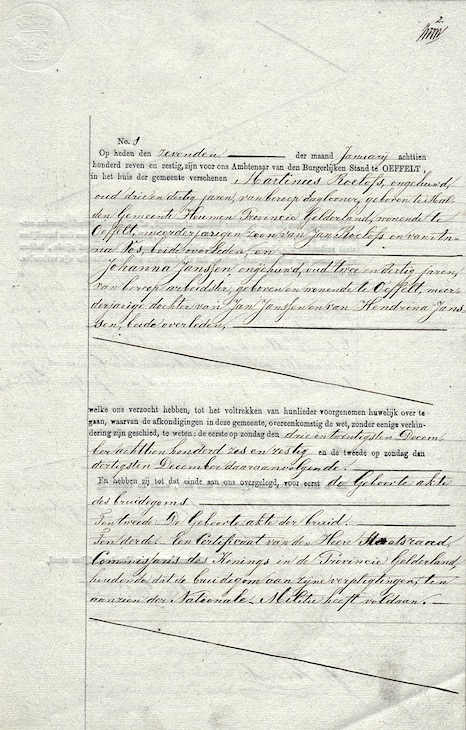 2.
No. 1
Op heden den zevenden der maand January achttien
honderd zeven en zestig, zijn voor ons Ambtenaar van den Burgerlijken Stand te OEFFELT,
in het huis der gemeente verschenen Martinus Roelofs, ongehuwd,
oud drie en dertig jaren, van beroep daglooner, geboren te Mal-
den Gemeente Heumen Provincie Gelderland, wonende te
Oeffelt, meerderjarigen zoon van Jan Roelofs en van An-
na Vos, beide overleden, en
Johanna Janssen ongehuwd, oud twee en dertig jaren,
van beroep arbeidster, geboren en wonende te Oeffelt, meer-
derjarige dochter van Jan Janssen en van Hendrina Jans
sen, beide overleden,
welke ons verzocht hebben, tot het voltrekken van hunlieder voorgenomen huwelijk over te
gaan, waarvan de afkondigingen in deze gemeente, overeenkomstig de wet, zonder eenige verhin-
dering zijn geschied, te weten: de eerste op zondag den drie en twintigsten Decem-
ber achttien honderd zes en zestig en de tweede op zondag den
dertigsten December daaraanvolgende.
En hebben zij tot dat einde aan ons overgelegd, voor eerst de Geboorte akte
des bruidegoms.
Ten tweede. De Geboorte akte der bruid.
Ten derde. Een Certificaat van den Heere Staatsraad
Commissaris des Konings in de Provincie Gelderland,
houdende dat de bruidigom aan zijne verpligtingen, ten
aanzien der Nationale Militie heeft voldaan.